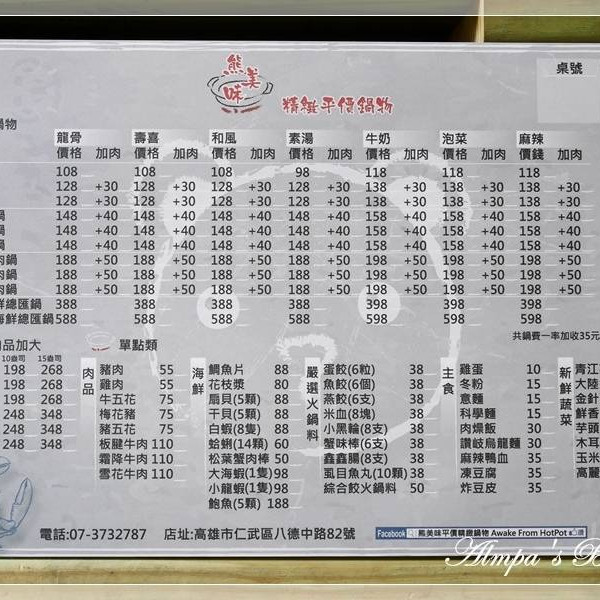 熊美味 精緻平價鍋物
桌號
鍋物
龍骨 壽喜 和風 素湯 牛奶 泡菜 麻辣
價格 加肉 價格 加肉 價格 加肉 價格 加肉 價格 加肉 價格 加肉 價錢 加肉
108 108 108 98 118 118 118
128 +30 128 +30 128 +30 128 +30 138 +30 138 +30 138 +30
128 +30 128 +30 128 +30 128 +30 138 +30 138 +30 138 +30
鍋 148 +40 148 +40 148 +40 148 +40 158 +40 158 +40 158 +40
鍋 148 +40 148 +40 148 +40 148 +40 158 +40 158 +40 158 +40
鍋 148 +40 148 +40 148 +40 148 +40 158 +40 158 +40 158 +40
肉鍋 188 +50 188 +50 188 +50 188 +50 198 +50 198 +50 198 +50
肉鍋 188 +50 188 +50 188 +50 188 +50 198 +50 198 +50 198 +50
肉鍋 188 +50 188 +50 188 +50 188 +50 198 +50 198 +50 198 +50
鮮總匯鍋 388 388 388 388 398 398 398
海鮮總匯鍋 588 588 588 588 598 598 598
共鍋費一率加收35元
肉品加大 單點類
10盎司 15盎司
198 268
198 268
198 268
248 348
248 348
248 348
肉品
豬肉 55
雞肉 55
牛五花 75
梅花豬 75
豬五花 75
板腱牛肉 110
霜降牛肉 110
雪花牛肉 110
海鮮
鯛魚片 88
花枝漿 80
扇貝(5顆) 88
干貝(5顆) 88
白蝦(8隻) 88
蛤蜊(14顆) 60
松葉蟹肉棒 50
大海蝦(1隻) 98
小龍蝦(1隻) 98
鮑魚(5顆) 188
嚴選火鍋料
蛋餃(6粒) 38
魚餃(6個) 38
燕餃(6支) 38
米血(8塊) 38
小黑輪(8支) 38
蟹味棒(6支) 38
鑫鑫腸(8支) 38
虱目魚丸(10顆) 38
綜合餃火鍋料 50
主食
雞蛋 10
冬粉 15
意麵 15
科學麵 15
肉燥飯 30
讚岐烏龍麵 30
麻辣鴨血 35
凍豆腐 35
炸豆皮 35
新鮮蔬菜
青江
大陸
金針
鮮香
芋頭
木耳
玉米
高麗
電話:07-3732787 店址:高雄市仁武區八德中路82號 Facebook 熊美味平價精緻鍋物 Awake From HotPot 讚
Atmpa's B